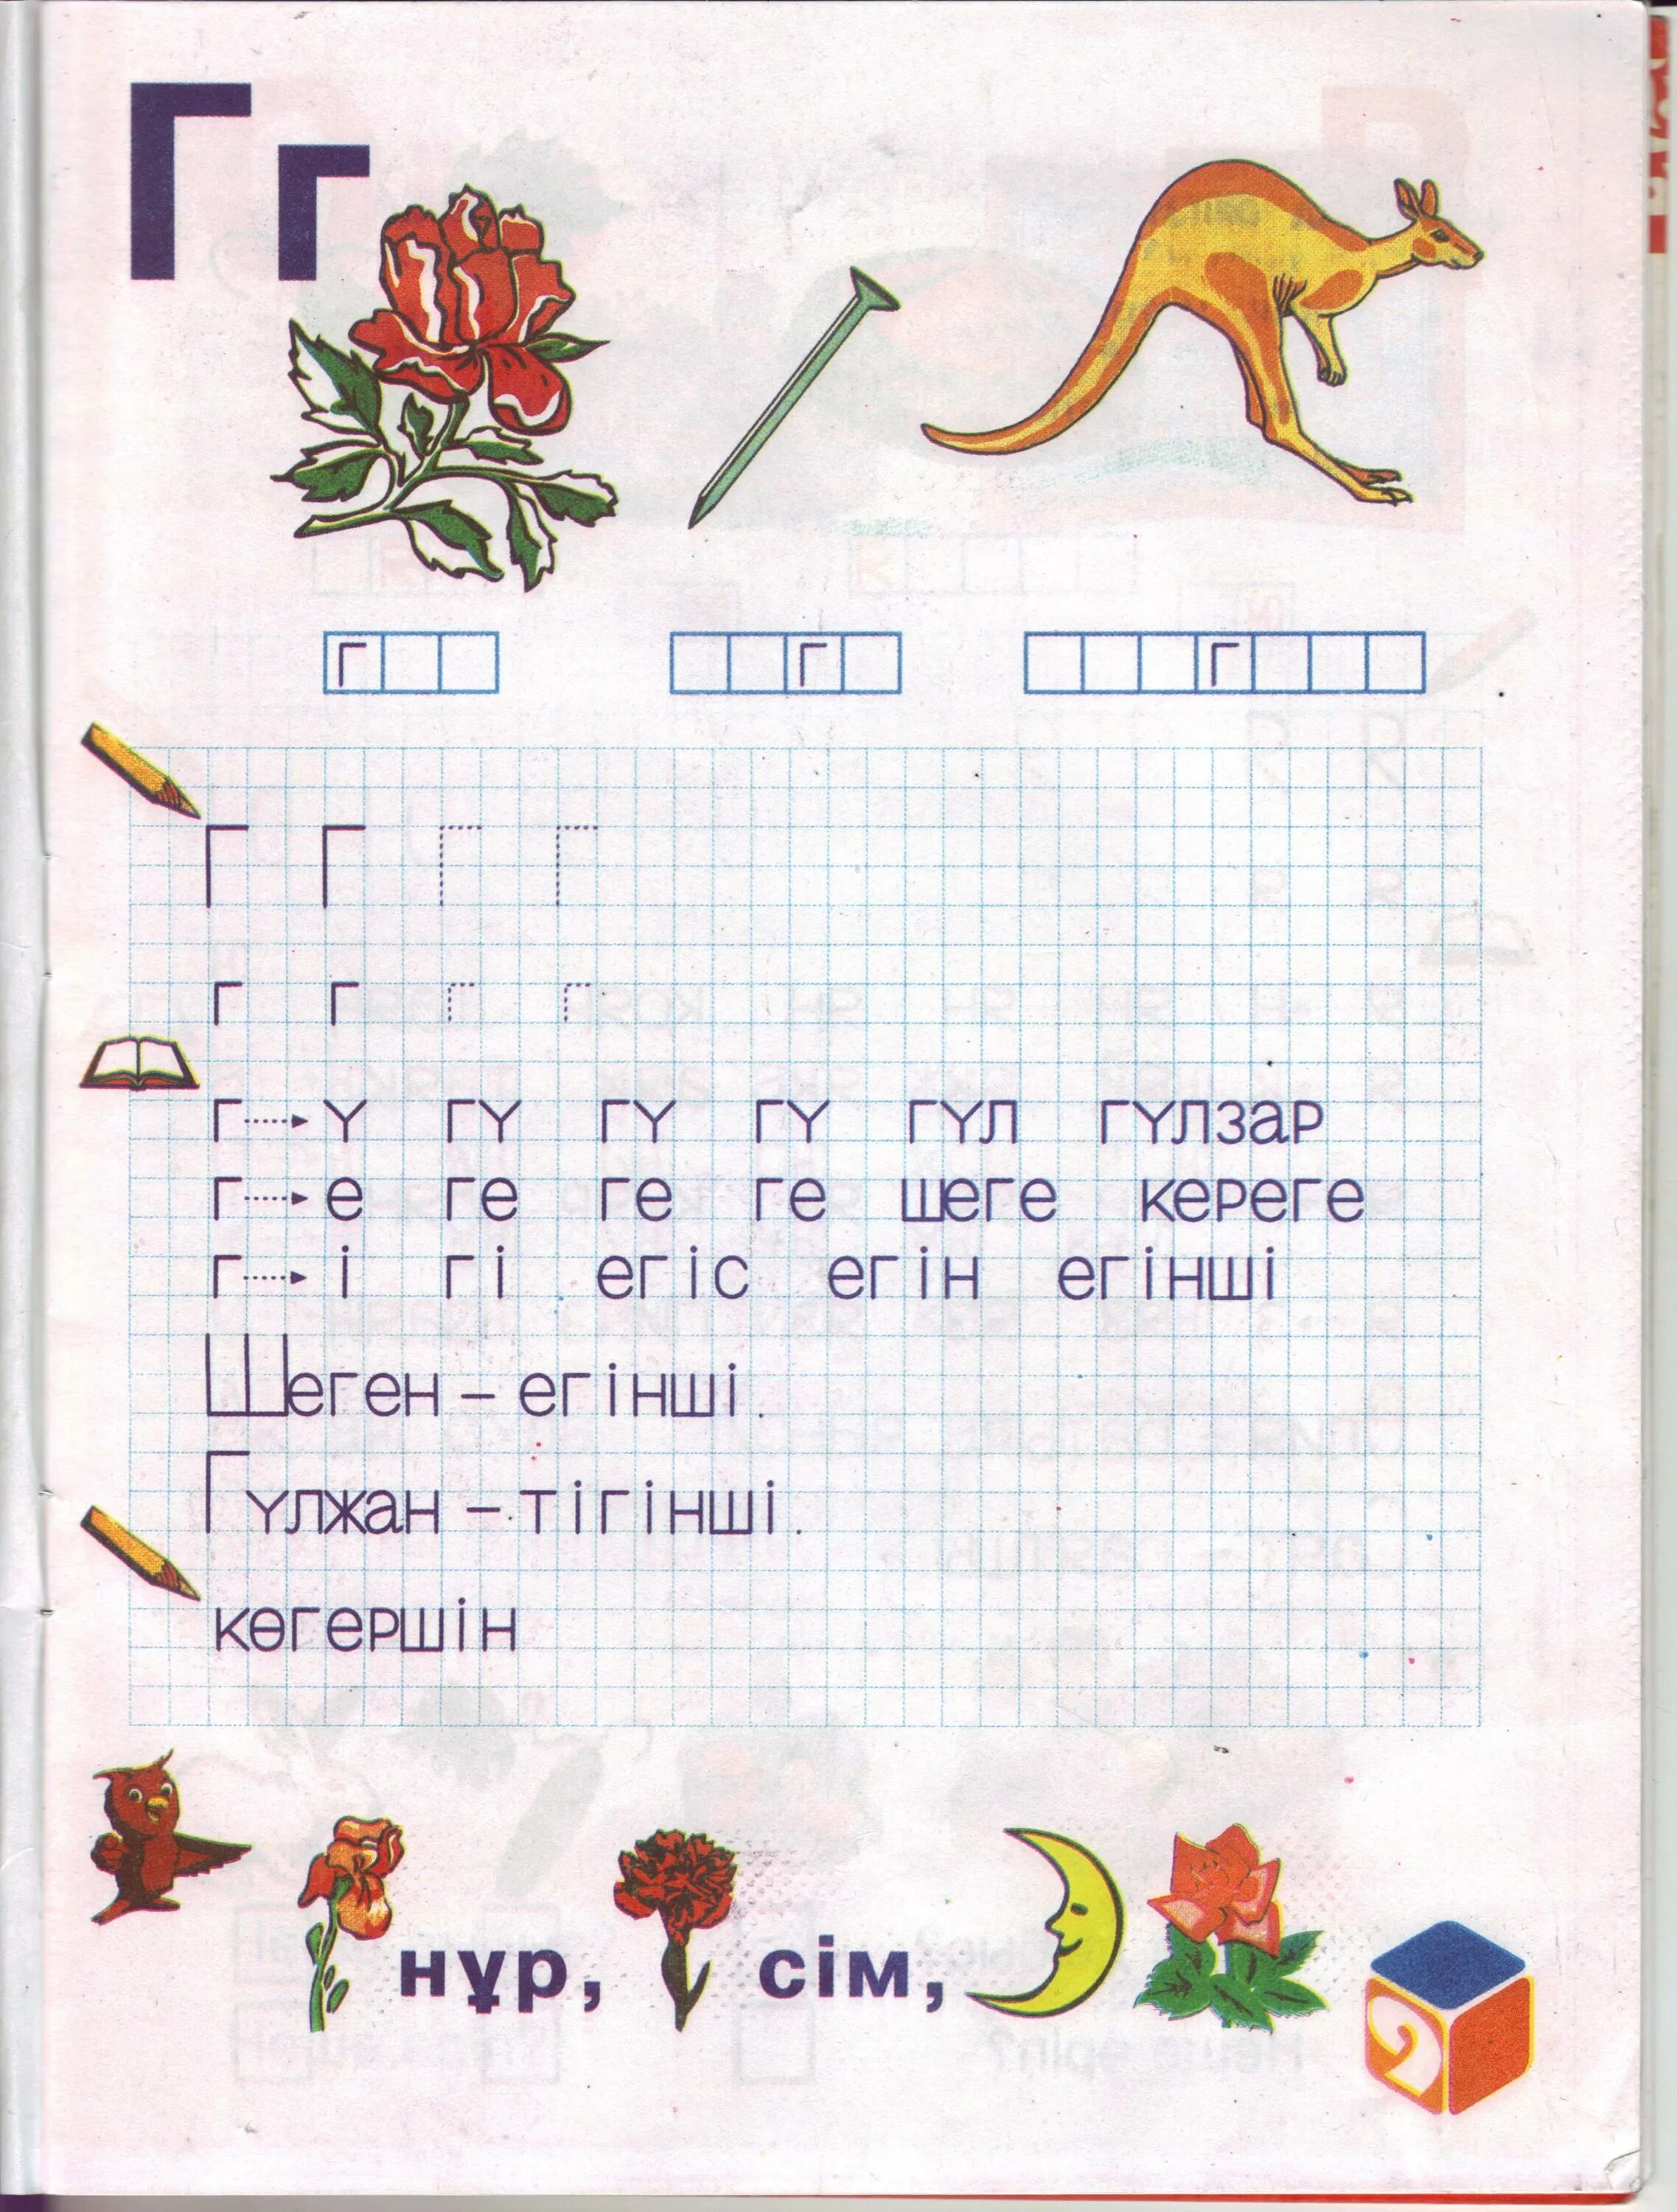 Г г
г г г
Г Г Г Г
г г г г
г ү гү гү гү гүл гүлзар
г е ге ге ге шеге кереге
г і гі егіс егін егінші
Шеген – егінші.
Гүлжан – тігінші.
көгершін
нұр, сім,